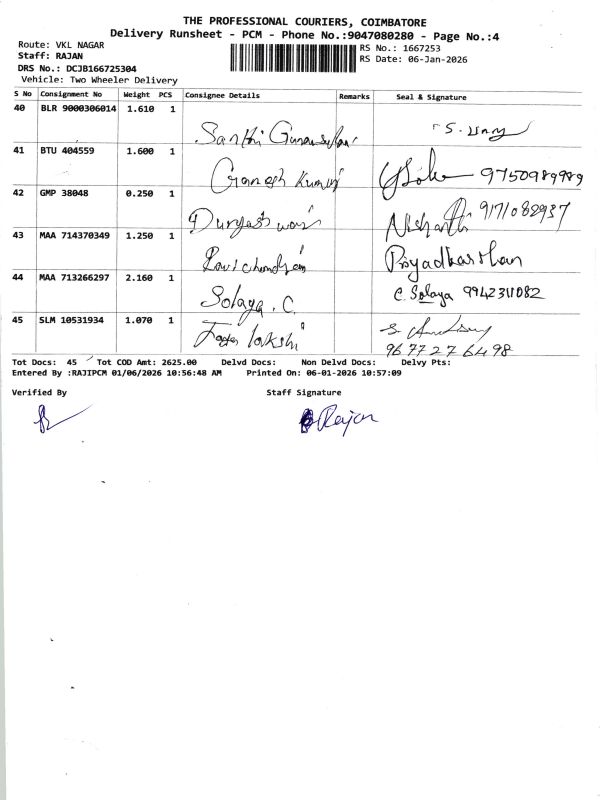 THE PROFESSIONAL COURIERS, COIMBATORE
Delivery Runsheet - PCM - Phone No.:9047080280 - Page No.:4
Route: VKL NAGAR
Staff: RAJAN
DRS No.: DCJB166725304
Vehicle: Two Wheeler Delivery
RS No.: 1667253
RS Date: 06-Jan-2026
S No Consignment No Weight PCS Consignee Details Remarks Seal & Signature
40 BLR 9000306014 1.610 1 Santhi
41 BTU 404559 1.600 1 Ganesh Kumar 9750989989
42 GMP 38048 0.250 1 Nishanth 9171082937
43 MAA 714370349 1.250 1 Priyadharshan
44 MAA 713266297 2.160 1 Solaya . C C. Solaya 9942311082
45 SLM 10531934 1.070 1 9677276498
Tot Docs: 45 Tot COD Amt: 2625.00 Delvd Docs: Non Delvd Docs: Delvy Pts:
Entered By :RAJIPCM 01/06/2026 10:56:48 AM Printed On: 06-01-2026 10:57:09
Verified By Staff Signature
Rajan